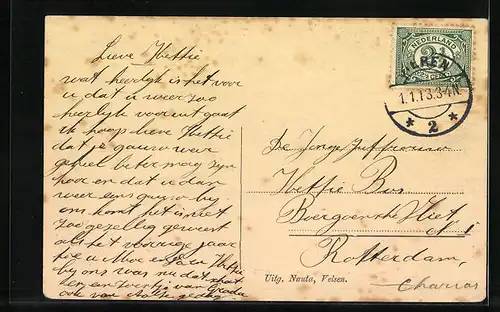 Lieve Hettie
wat heerlijk is het voor
u dat u weer zoo
heerlijk vooruit gaat
ik hoop lieve Hettie
dat je gauw weer
geheel beter mag zijn
hoor en dat u dan
weer eens gauw bij
ons komt het is niet
zoo gezellig geweest
als het vorige jaar
toe u Moe en Pa en Hetje
bij ons was nu dat
hen en van
ook van
NEDERLAND
2½
CENT
1.1.13.3-4N
* 2 *
De Jonge Juffrouw
Hettie Bos
Boergoensche Vliet
Rotterdam
Uitg. Nauta, Velsen.
Charlois